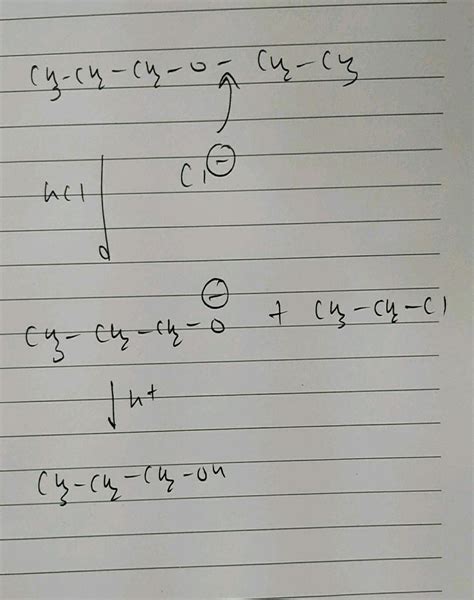 CH3-CH2-CH2-O-CH2-CH3
Cl⊖
HCl
⊖
CH3-CH2-CH2-O + CH3-CH2-Cl
H+
CH3-CH2-CH2-OH